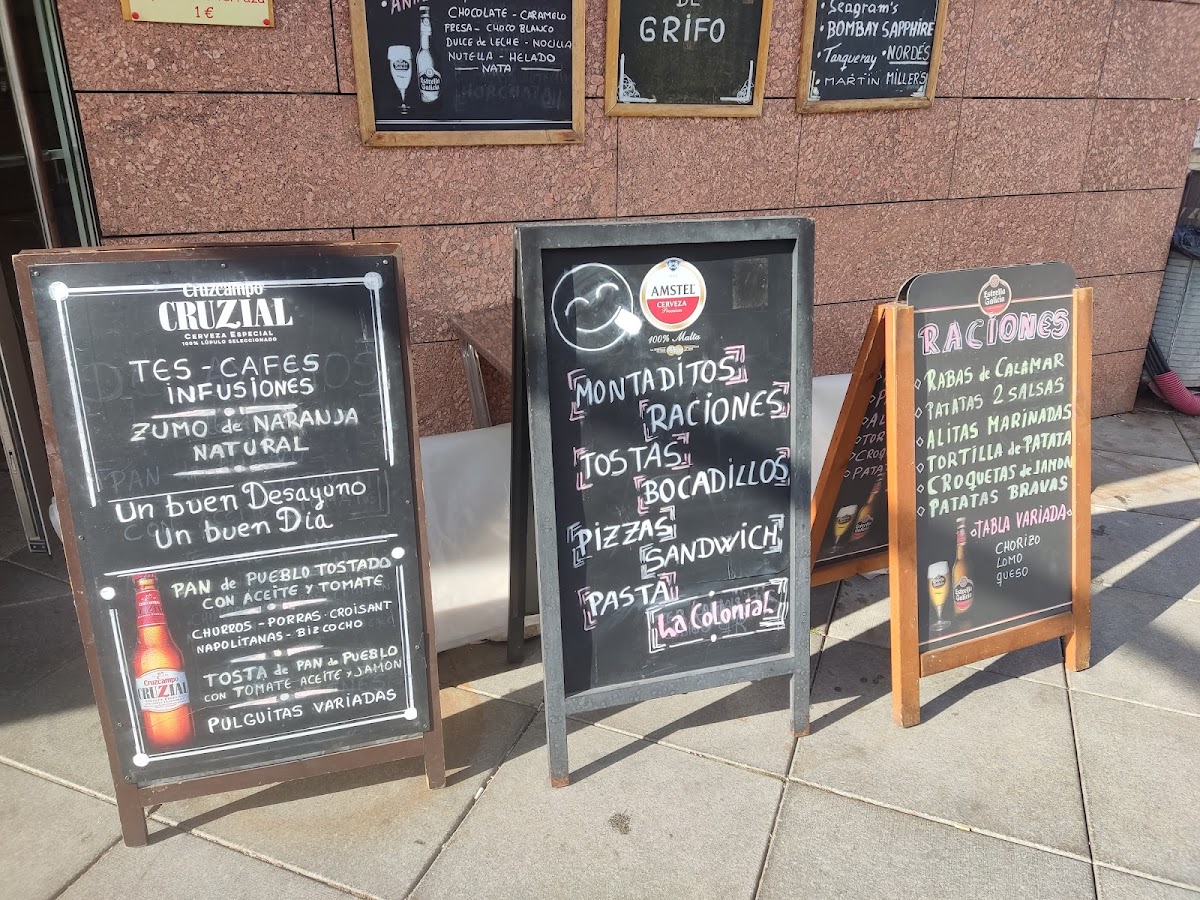 1 €
CHOCOLATE - CARAMELO
FRESA - CHOCO BLANCO
DULCE de LECHE - NOCILLA
NUTELLA - HELADO
NATA
Estrella
Galicia
HORCHATA
DE
GRIFO
Seagram's
BOMBAY SAPPHIRE
Tanqueray • NORDÉS
• MARTIN MILLERS
Cruzcampo
CRUZIAL
CERVEZA ESPECIAL
100% LÚPULO SELECCIONADO
TES - CAFES
INFUSIONES
ZUMO de NARANJA
NATURAL
Un buen Desayuno
Un buen Día
PAN de PUEBLO TOSTADO
CON ACEITE y TOMATE
CHURROS - PORRAS - CROISANT
NAPOLITANAS - BIZCOCHO
TOSTA de PAN de PUEBLO
CON TOMATE ACEITE y JAMÓN
PULGUITAS VARIADAS
Cruzcampo
CRUZIAL
AMSTEL
CERVEZA
Premium
100% Malta
MONTADITOS
RACIONES
TOSTAS
BOCADILLOS
PIZZAS
SANDWICH
PASTA
La Colonial
Estrella
Galicia
RACIONES
RABAS de CALAMAR
PATATAS 2 SALSAS
ALITAS MARINADAS
TORTILLA de PATATA
CROQUETAS de JAMON
PATATAS BRAVAS
TABLA VARIADA
CHORIZO
LOMO
QUESO